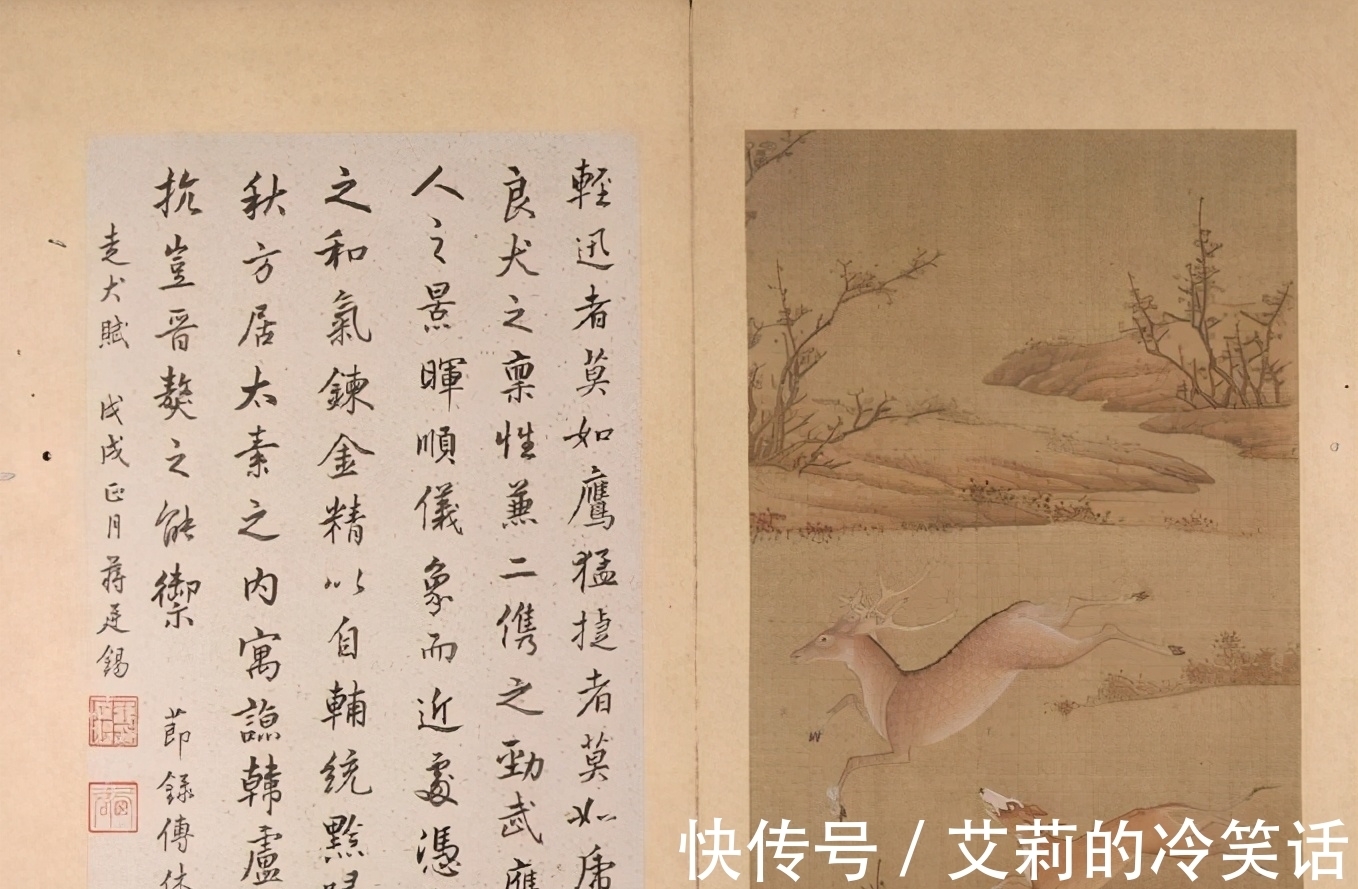 輕迅者莫如鷹猛捷者莫如虎
良犬之稟性兼二儁之勁武應
人之景暉順儀象而近處憑
之和氣鍊金精以自輔統黔
秋方居太素之內寓諒韓盧
抗豈晉獒之能禦 節録傅休
走犬賦 戊戌正月蔣廷錫
快传号 / 艾莉的冷笑话